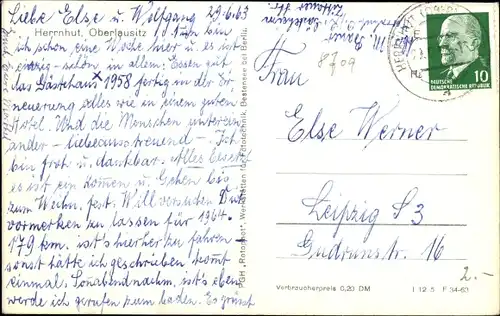 Liebe Else u. Wolfgang 29.6.63
Herrnhut, Oberlausitz
ich schon eine Woche hier u. es ist
einzig - schön in allem. Essen gut
das Gästehaus 1958 fertig in der Er
neuerung alles wie in einem guten
Hotel. Und die Menschen unterein
ander - liebeausstreuend - Ich
bin froh u. dankbar. Alles besetzt
es ist ein Kommen u. Gehen bis
zum Wochn. fest. Will versuchen Dich
vormerken zu lassen für 1964.
179 km. ist's hierher zu fahren
sonst hätte ich geschrieben kommt
einmal. Sonnabendnachm. ist's eben
werde ich gerufen zum baden. Es grüsst
PGH "Rotophot", Werkstätten für Fototechnik, Bestensee bei Berlin
8709
DEUTSCHE
DEMOKRATISCHE REPUBLIK
10
Frau
Else Werner
Leipzig S3
Gudrunstr. 16
2.-
Verbraucherpreis 0,20 DM I 12 5 F 34-63